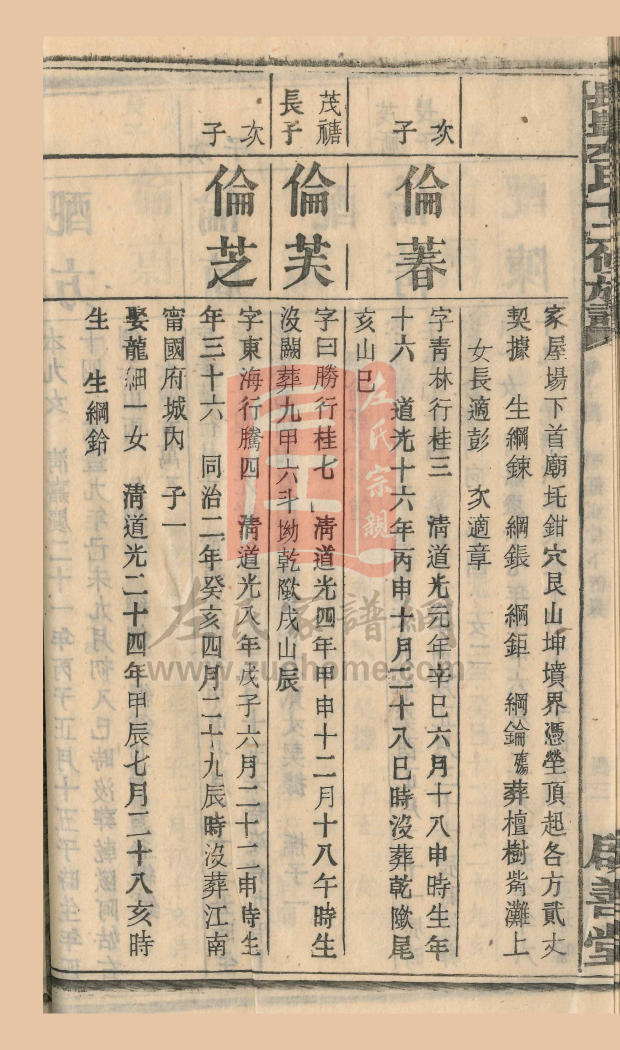 家屋場下首廟圫鉗穴艮山坤墳界憑塋頂起各方貳丈
契據 生綱鍊 綱鋹 綱鉅 綱鑰殤葬檀樹觜灘上
女長適彭 次適章
次子
倫萶
字青林行桂三 淸道光元年辛巳六月十八申時生年
十六 道光十六年丙申十月二十八巳時沒葬乾隞尾
亥山巳
茂禟長子
倫芙
字曰勝行桂七 淸道光四年甲申十二月十八午時生
沒闕葬九甲六斗坳乾隞戌山辰
次子
倫芝
字東海行騰四 淸道光八年戊子六月二十二申時生
年三十六 同治二年癸亥四月二十九辰時沒葬江南
甯國府城內 子一
娶龍細一女 淸道光二十四年甲辰七月二十八亥時
生 生綱鈴
啟善堂
左氏宗親
左氏家譜網